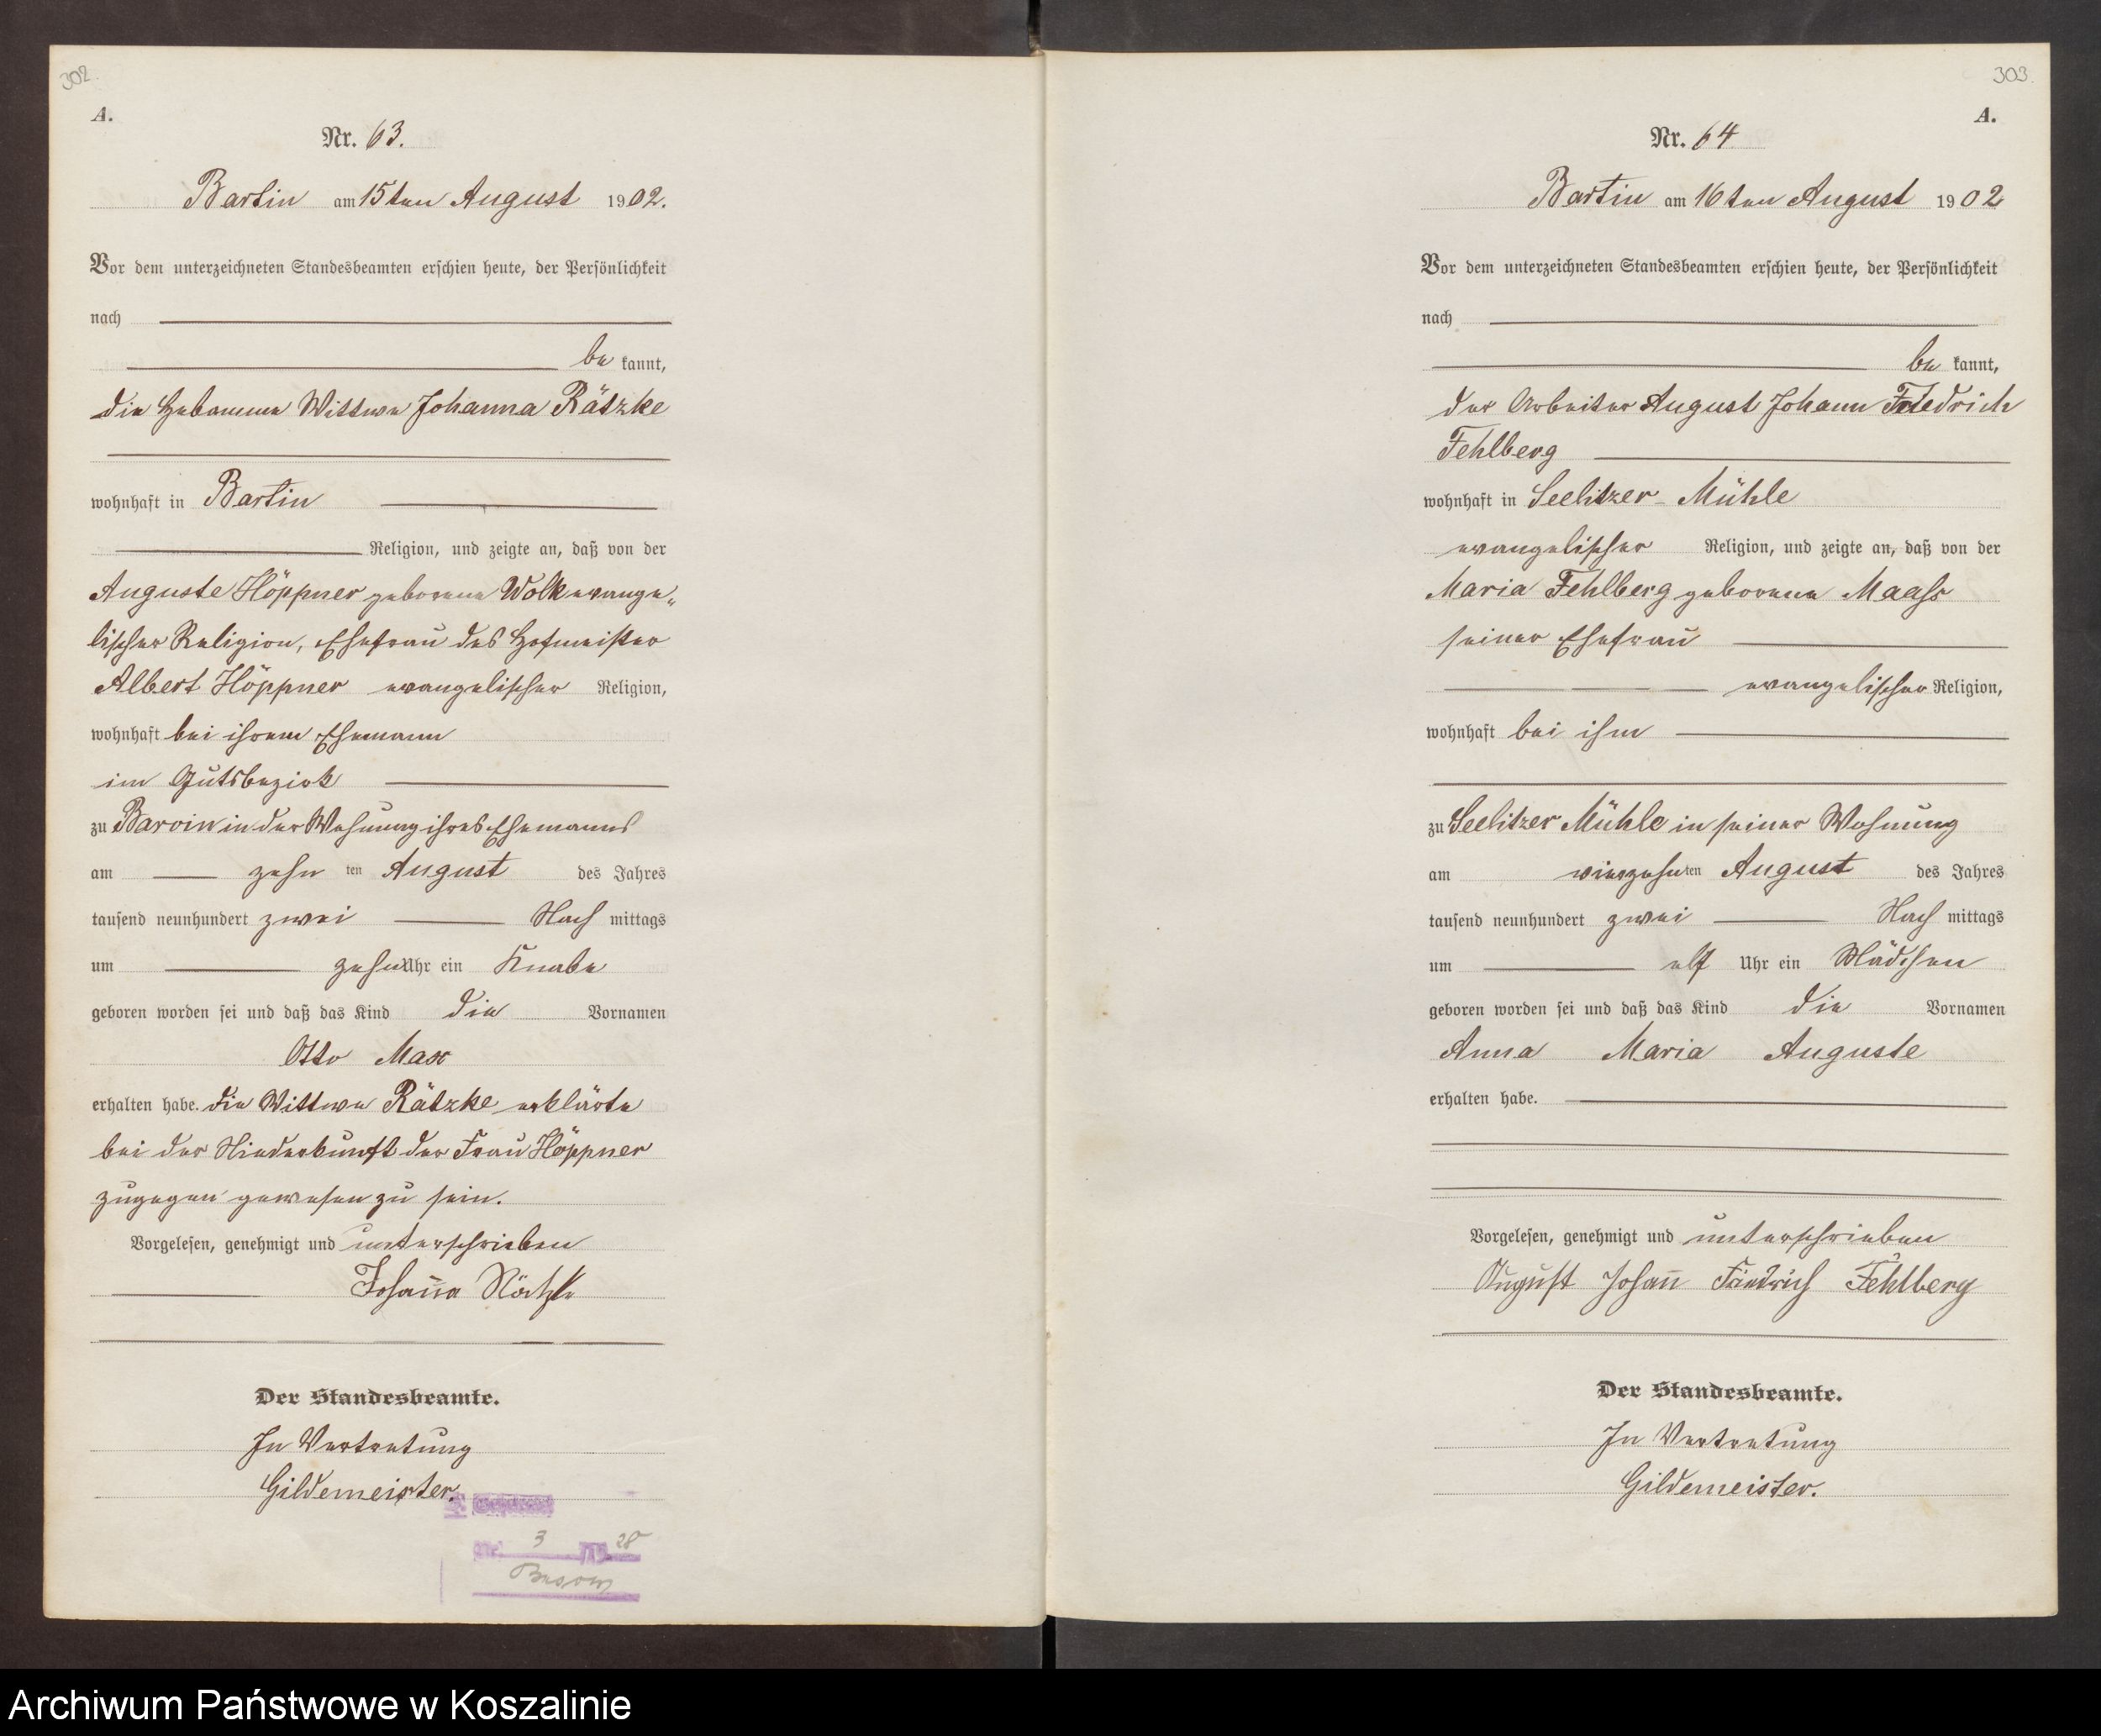 302.
A.
Nr. 63.
Bartin am 15ten August 1902.
Vor dem unterzeichneten Standesbeamten erschien heute, der Persönlichkeit
nach
be kannt,
die Hebamme Wittwe Johanna Rätzke
wohnhaft in Bartin
Religion, und zeigte an, daß von der
Auguste Höppner geborene Wolk evange„
lischer Religion, Ehefrau des Hofmeister
Albert Höppner evangelischer Religion,
wohnhaft bei ihrem Ehemann
im Gutsbezirk
zu Barvin in der Wohnung ihres Ehemanns
am zehn ten August des Jahres
tausend neunhundert zwei Nach mittags
um zehn Uhr ein Knabe
geboren worden sei und daß das Kind die Vornamen
Otto Max
erhalten habe. die Wittwe Rätzke erklärte
bei der Niederkunft der Frau Höppner
zugegen gewesen zu sein.
Vorgelesen, genehmigt und unterschrieben
Johanna Rätzke
Der Standesbeamte.
In Vertretung
Gildemeister.
3 28
303.
A.
Nr. 64
Bartin am 16ten August 1902
Vor dem unterzeichneten Standesbeamten erschien heute, der Persönlichkeit
nach
be kannt,
der Arbeiter August Johann Friedrich
Fehlberg
wohnhaft in Seelitzer-Mühle
evangelischer Religion, und zeigte an, daß von der
Maria Fehlberg geborene Maaß
seiner Ehefrau
evangelischer Religion,
wohnhaft bei ihm
zu Seelitzer Mühle in seiner Wohnung
am vierzehn ten August des Jahres
tausend neunhundert zwei Nach mittags
um elf Uhr ein Mädchen
geboren worden sei und daß das Kind die Vornamen
Anna Maria Auguste
erhalten habe.
Vorgelesen, genehmigt und unterschrieben
August Johann Friedrich Fehlberg
Der Standesbeamte.
In Vertretung
Gildemeister.
Archiwum Państwowe w Koszalinie